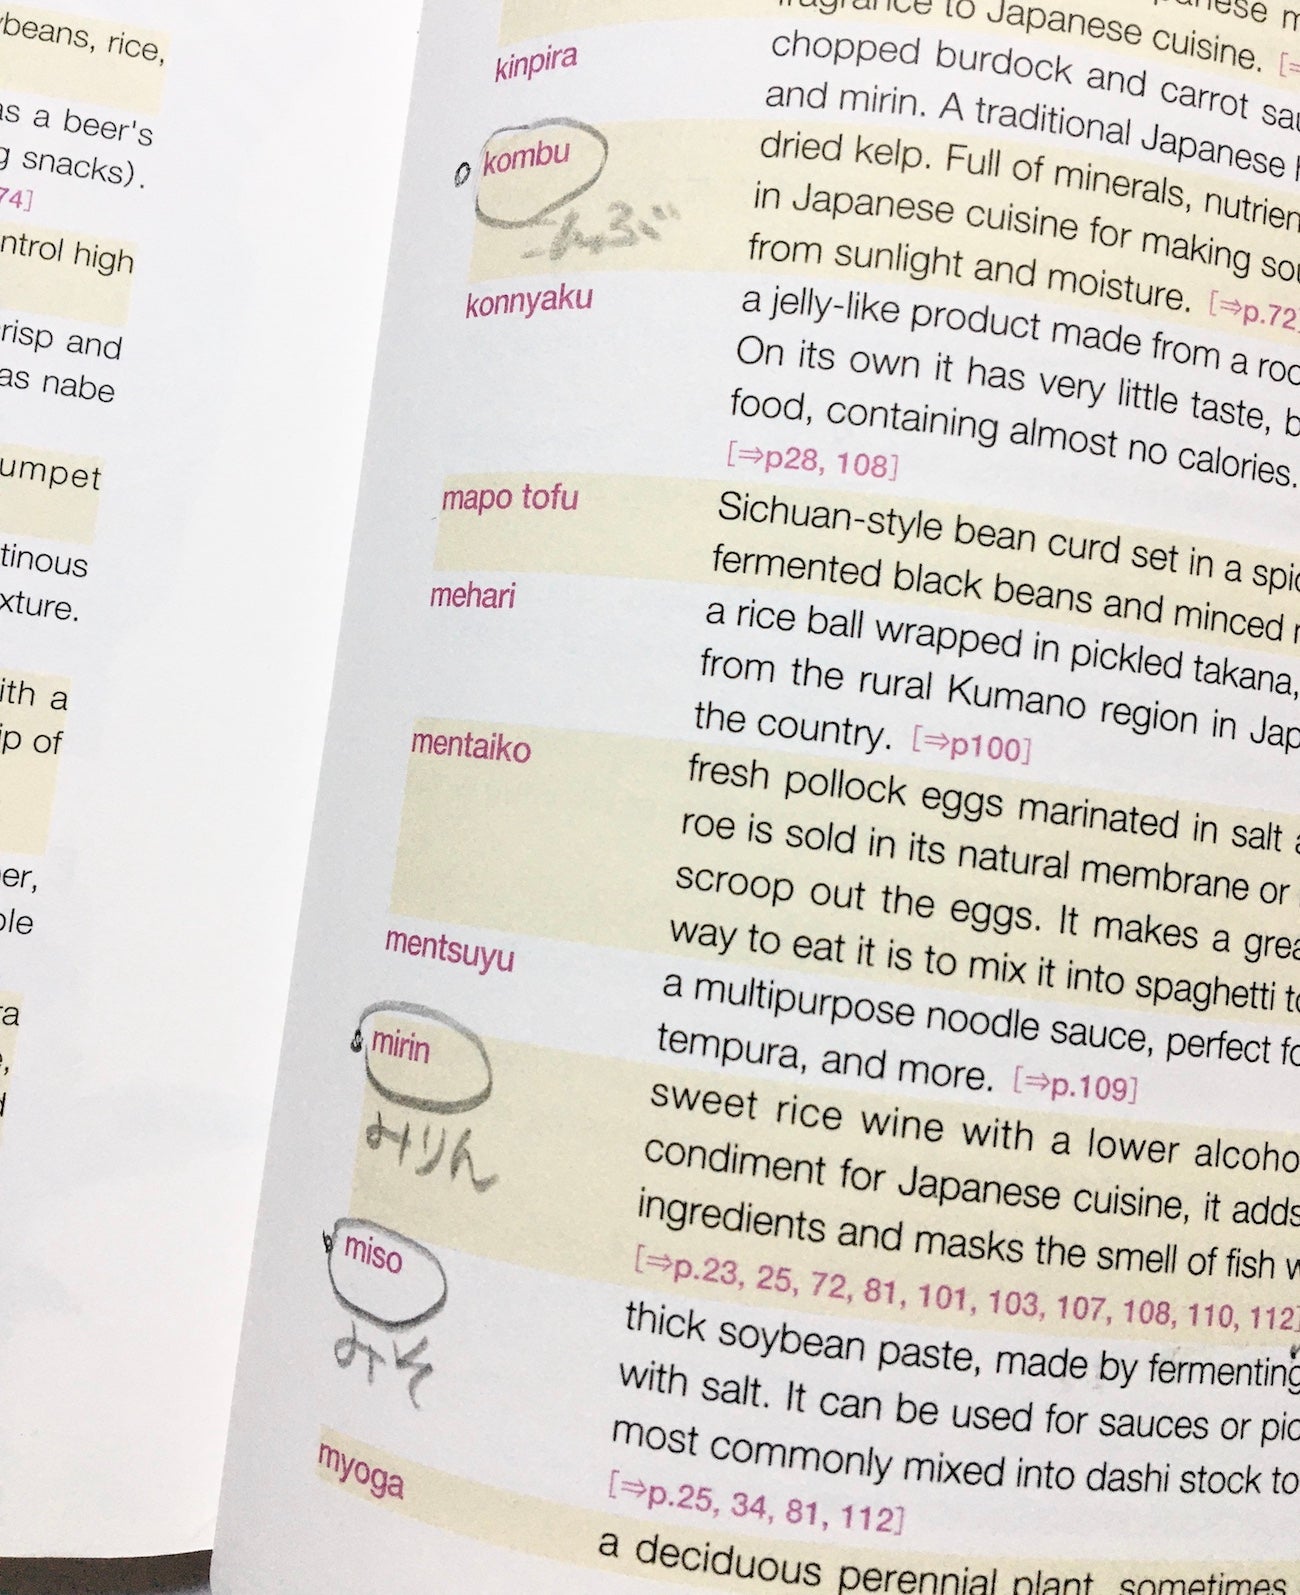 ybeans, rice,
as a beer's
g snacks).
74]
ntrol high
risp and
as nabe
umpet
tinous
xture.
ith a
ip of
er,
ble
ra
fragrance to Japanese cuisine.
kinpira
chopped burdock and carrot sau
and mirin. A traditional Japanese h
kombu
こんぶ
dried kelp. Full of minerals, nutrien
in Japanese cuisine for making sou
from sunlight and moisture. [⇒p.72]
konnyaku
a jelly-like product made from a roo
On its own it has very little taste, b
food, containing almost no calories.
[⇒p28, 108]
mapo tofu
Sichuan-style bean curd set in a spic
fermented black beans and minced
mehari
a rice ball wrapped in pickled takana,
from the rural Kumano region in Jap
the country. [⇒p100]
mentaiko
fresh pollock eggs marinated in salt a
roe is sold in its natural membrane or
scroop out the eggs. It makes a grea
way to eat it is to mix it into spaghetti to
mentsuyu
a multipurpose noodle sauce, perfect fo
tempura, and more. [⇒p.109]
mirin
みりん
sweet rice wine with a lower alcoho
condiment for Japanese cuisine, it adds
ingredients and masks the smell of fish w
[⇒p.23, 25, 72, 81, 101, 103, 107, 108, 110, 112]
miso
みそ
thick soybean paste, made by fermenting
with salt. It can be used for sauces or pic
most commonly mixed into dashi stock to
[⇒p.25, 34, 81, 112]
myoga
a deciduous perennial plant, sometimes